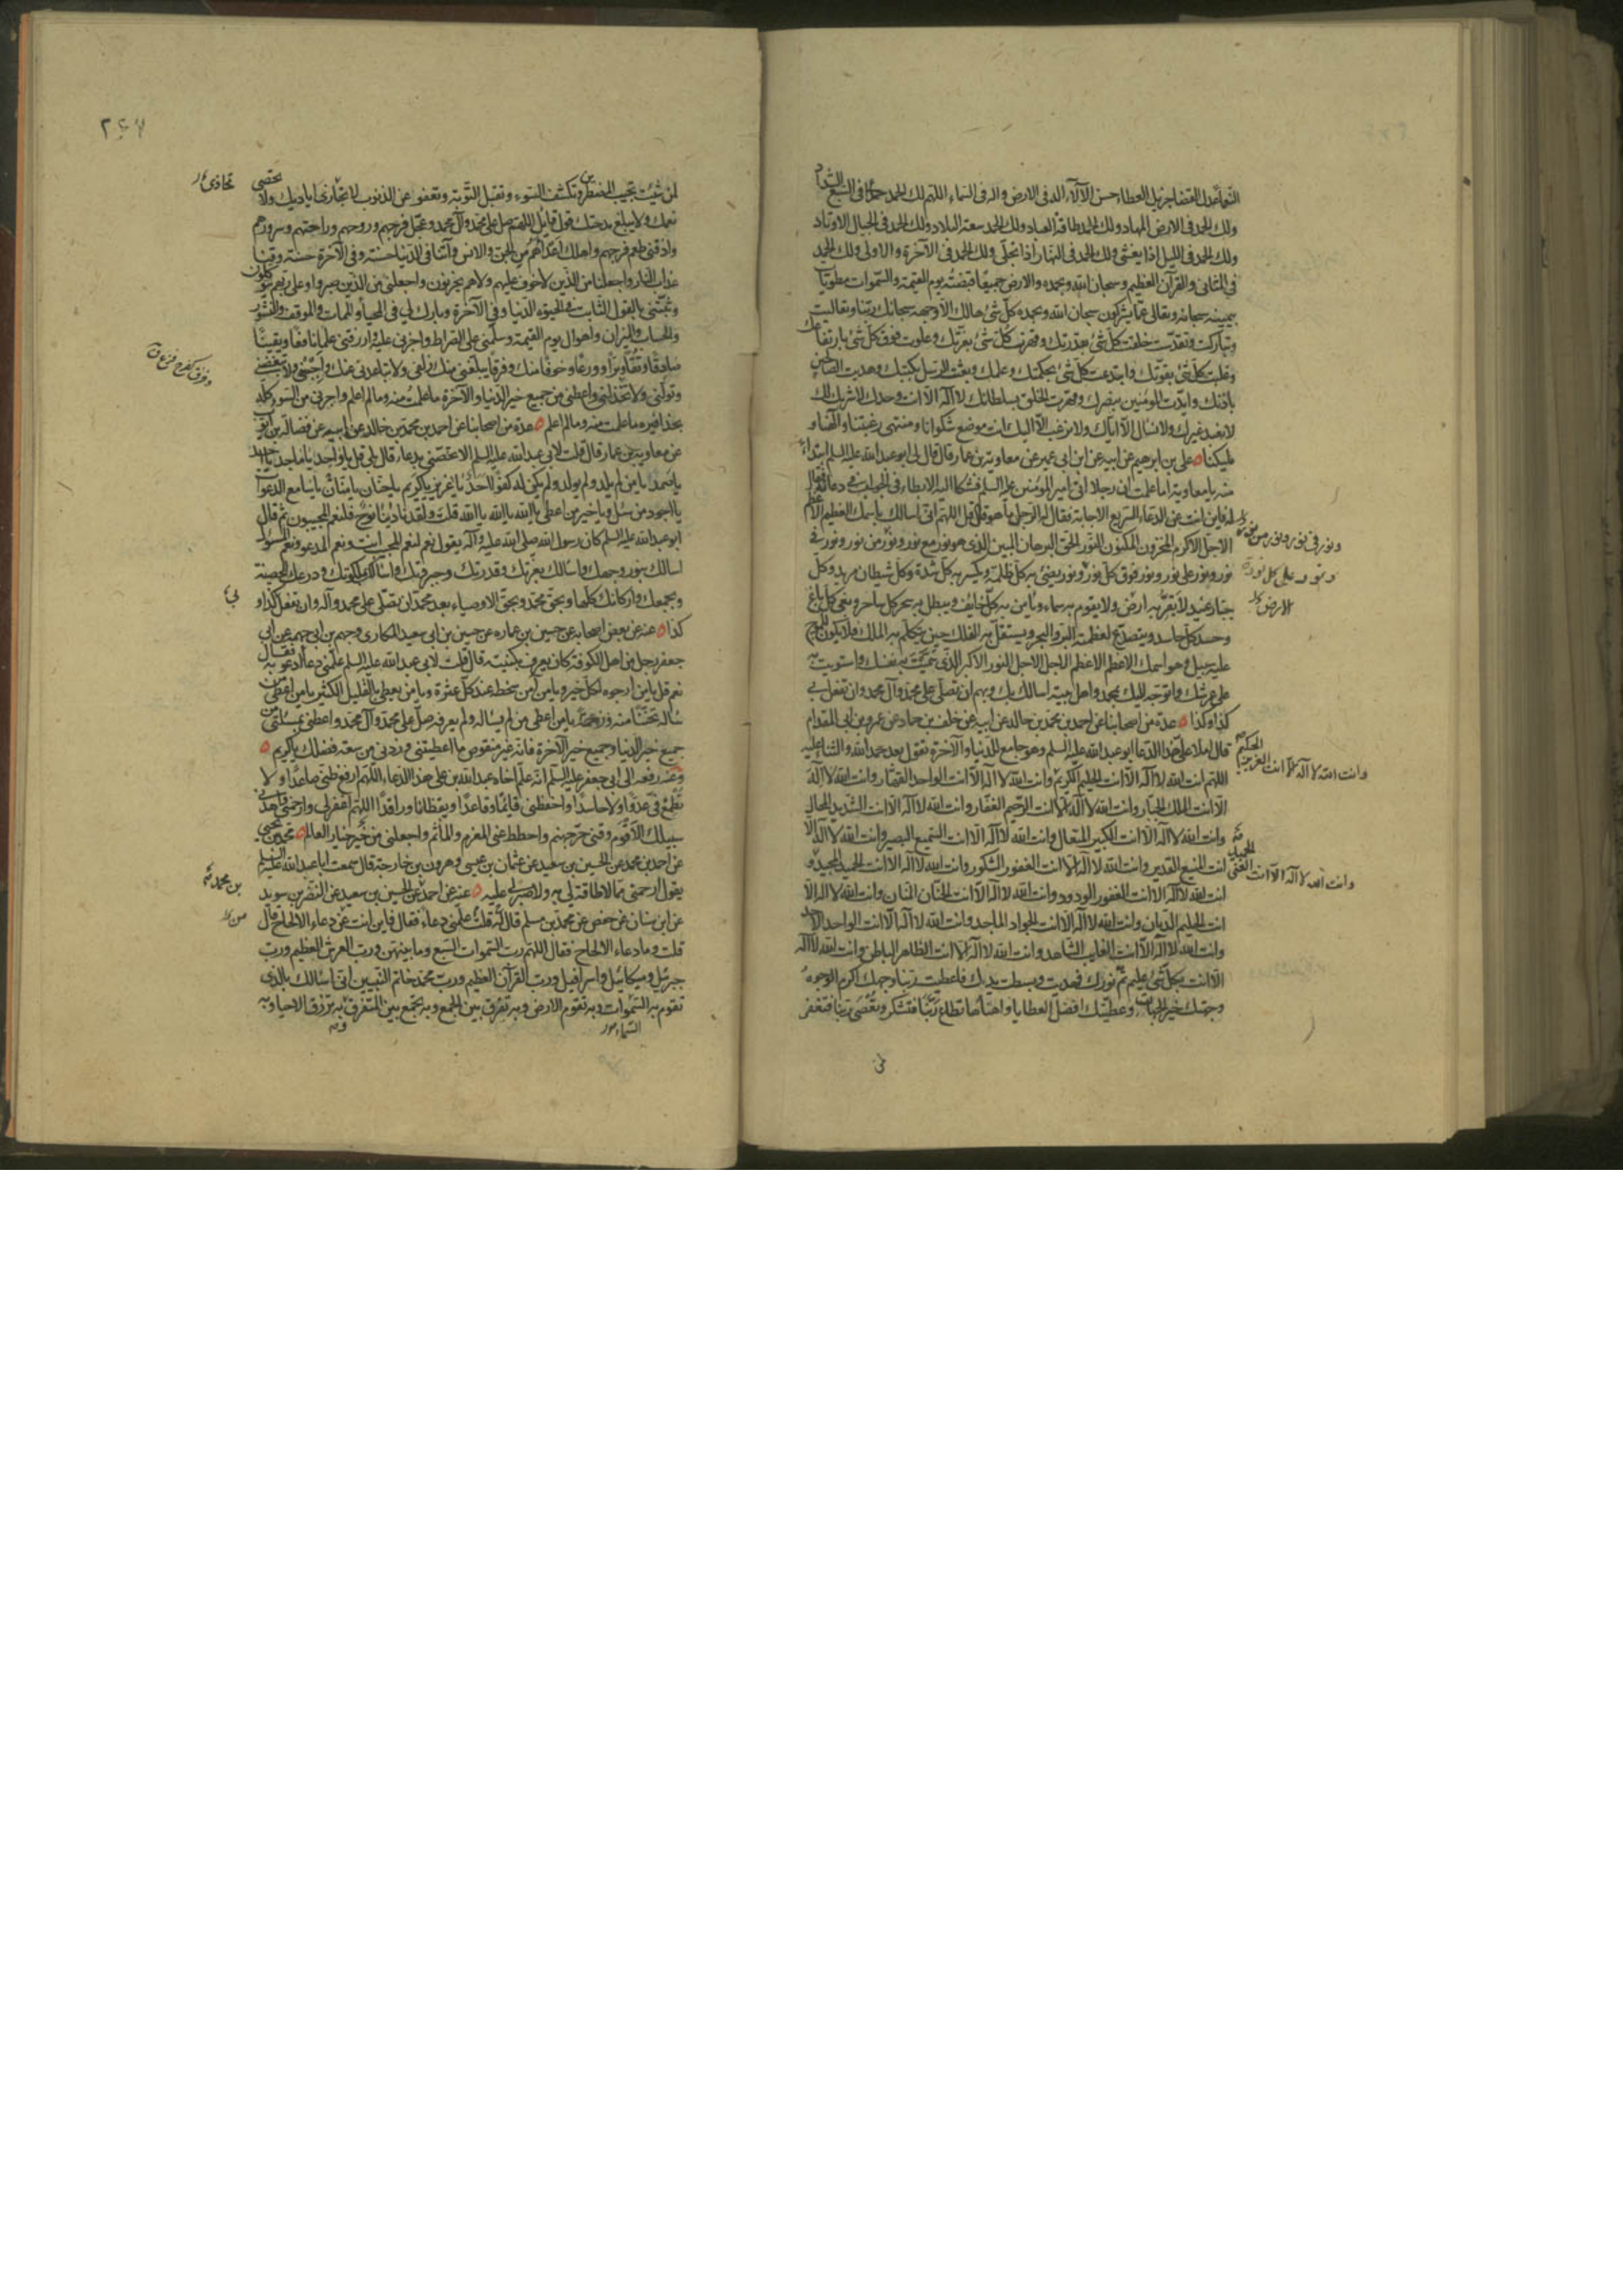 النعماء عدل القضا جزيل العطاء حسن الآلاء اله فى الارض واله فى السماء اللهم لك الحمد فى السبع الشداد
ولك الحمد فى الارض المهاد ولك الحمد طاقة العباد ولك الحمد سعة البلاد ولك الحمد فى الجبال الاوتاد
ولك الحمد فى الليل اذا يغشى ولك الحمد فى النهار اذا تجلى ولك الحمد فى الآخرة والاولى ولك الحمد
فى المثانى والقرآن العظيم وسبحان الله وبحمده والارض جميعا قبضته يوم القيمة والسموات مطويات
بيمينه سبحانه وتعالى عما يشركون سبحان الله وبحمده كل شئ هالك الا وجهه سبحانك ربنا وتعاليت
وتباركت وتقدست خلقت كل شئ بقدرتك وقهرت كل شئ بعزتك وعلوت فوق كل شئ بارتفاعك
وغلبت كل شئ بقوتك وابتدعت كل شئ بحكمتك وعلمك وبعثت الرسل بكتبك وهديت الصالحين
باذنك وايدت المومنين بنصرك وقهرت الخلق بسلطانك لا اله الا انت وحدك لا شريك لك
لا نعبد غيرك ولا نسال الا اياك ولا نرغب الا اليك انت موضع شكوانا ومنتهى رغبتنا والهنا و
مليكنا ه على بن ابرهيم عن ابيه عن ابن ابى عمير عن معاوية بن عمار قال قال لى ابو عبد الله عليه السلم ابتداء
منه يا معاوية اما علمت ان رجلا اتى امير المومنين عليه السلم فشكا اليه الابطاء فى الجواب فى دعائه فقال
له فاين انت عن الدعاء السريع الاجابة فقال له الرجل ما هو قال قل اللهم انى اسالك باسمك العظيم الاعظم
الاجل الاكرم المخزون المكنون النور الحق البرهان المبين الذى هو نور مع نور ونور من نور ونور فى
نور ونور على نور ونور فوق كل نور ونور يضئ به كل ظلمة ويكسر به كل شدة وكل شيطان مريد وكل
جبار عنيد لا تقر به ارض ولا يقوم به سماء ويامن به كل خايف ويبطل به سحر كل ساحر وبغى كل باغ
وحسد كل حاسد ويتصدع لعظمته البر والبحر ويستقل به الفلك حين يتكلم به الملك فلا يكون للموج
عليه سبيل وهو اسمك الاعظم الاعظم الاجل الاجل النور الاكبر الذى سميت به نفسك واستويت به
على عرشك واتوجه اليك بمحمد واهل بيته اسالك بك وبهم ان تصلى على محمد وآل محمد وان تفعل بى
كذا وكذا ه عدة من اصحابنا عن احمد بن محمد بن خالد عن ابيه عن خلف بن حماد عن عمرو بن ابى المقدام
قال املا على هذا الدعا ابو عبد الله عليه السلم وهو جامع للدنيا والآخرة تقول بعد حمد الله والثنا عليه
اللهم انت الله لا اله الا انت الحليم الكريم وانت الله لا اله الا انت الواحد القهار وانت الله لا اله
الا انت الملك الجبار وانت الله لا اله الا انت الرحيم الغفار وانت الله لا اله الا انت الشديد المحال
وانت الله لا اله الا انت الكبير المتعال وانت الله لا اله الا انت السميع البصير وانت الله لا اله الا
انت المنيع القدير وانت الله لا اله الا انت الغفور الشكور وانت الله لا اله الا انت الحميد المجيد و
انت الله لا اله الا انت الغفور الودود وانت الله لا اله الا انت الحنان المنان وانت الله لا اله الا
انت الحليم الديان وانت الله لا اله الا انت الجواد الماجد وانت الله لا اله الا انت الواحد الاحد
وانت الله لا اله الا انت الغايب الشاهد وانت الله لا اله الا انت الظاهر الباطن وانت الله لا اله
الا انت بكل شئ عليم تم نورك فهديت وبسطت يدك فاعطيت ربنا وجهك اكرم الوجوه
وجهتك خير الجهات وعطيتك افضل العطايا واهناها تطاع ربنا فتشكر وتعصى ربنا فتغفر
لمن
ونور فى نور ونور من نور
ونور على كل نور
الارض
الحكيم
وانت الله لا اله الا انت العزيز
الحميد
وانت الله لا اله الا انت الغنى
٢٤٧
لمن شئت تجيب المضطرين وتكشف السوء وتقبل التوبة وتعفو عن الذنوب لا تجازى اياديك ولا تحصى
نعمك ولا يبلغ مدحتك قول قايل اللهم صل على محمد وآل محمد وعجل فرجهم وروحهم وراحتهم وسرورهم
واذقنى طعم فرجهم واهلك اعداهم من الجن والانس وآتنا فى الدنيا حسنة وفى الآخرة حسنة وقنا
عذاب النار واجعلنا من الذين لا خوف عليهم ولا هم يحزنون واجعلنى من الذين صبروا وعلى ربهم يتوكلون
وثبتنى بالقول الثابت فى الحيوة الدنيا وفى الآخرة وبارك لى فى المحيا والممات والموقف والنشور
والحساب والميزان واهوال يوم القيمة وسلمنى على الصراط واجزنى عليه وارزقنى علما نافعا ويقينا
صادقا وتقا وبرا وورعا وخوفا منك وفرقا يبلغنى منك زلفى ولا يباعدنى عنك واحبنى ولا تبغضنى
وتولنى ولا تخذلنى واعطنى من جميع خير الدنيا والآخرة ما علمت منه وما لم اعلم واجرنى من السوء كله
بحذافيره ما علمت منه وما لم اعلم ه عدة من اصحابنا عن احمد بن محمد بن خالد عن ابيه عن فضالة بن ايوب
عن معاوية بن عمار قال قلت لابى عبد الله عليه السلم الا تخصنى بدعاء قال بلى قل يا واحد يا ماجد يا احد
يا صمد يا من لم يلد ولم يولد ولم يكن له كفوا احد يا عزيز يا كريم يا حنان يا منان يا سامع الدعوات
يا اجود من سئل ويا خير من اعطى يا الله يا الله يا الله قلت ولقد نادينا نوح فلنعم المجيبون ثم قال
ابو عبد الله عليه السلم كان رسول الله صلى الله عليه وآله يقول نعم لنعم المجيب انت ونعم المدعو ونعم المسئول
اسالك بنور وجهك واسالك بعزتك وقدرتك وجبروتك واسالك بملكوتك ودرعك الحصينة
وبجمعك واركانك كلها وبحق محمد وبحق الاوصياء بعد محمد ان تصلى على محمد وآله وان تفعل كذا و
كذا ه عنه عن بعض اصحابه عن حسين بن عماره عن حسين بن ابى سعيد المكارى وجهم بن ابى جهيمة عن ابى
جعفر رجل من اهل الكوفة كان يعرف بكنيته قال قلت لابى عبد الله عليه السلم علمنى دعا ادعو به فقال
نعم قل يا من ارجوه لكل خير ويا من آمن سخطه عند كل عثرة ويا من يعطى بالقليل الكثير يا من اعطى من
ساله تحننا منه ورحمة يا من اعطى من لم يساله ولم يعرفه صل على محمد وآل محمد واعطنى بمسئلتى من
جميع خير الدنيا وجميع خير الآخرة فانه غير منقوص ما اعطيتنى وزدنى من سعة فضلك يا كريم ه
وعنه رفعه الى ابى جعفر عليه السلم انه علم اخاه عبد الله بن على هذا الدعاء اللهم ارفع ظنى صاعدا ولا
تطمع فى عدوا ولا حاسدا واحفظنى قائما وقاعدا ويقظانا وراقدا اللهم اغفر لى وارحمنى واهدنى
سبيلك الاقوم وقنى حر جهنم واحطط عنى المغرم والمأثم واجعلنى من خير خيار العالم ه محمد بن يحيى
عن احمد بن محمد عن الحسين بن سعيد عن عثمان بن عيسى وهرون بن خارجة قال سمعت ابا عبد الله عليه السلم
يقول ارحمنى مما لا طاقة لى به ولا صبر لى عليه ه عنه عن احمد عن الحسين بن سعيد عن النضر بن سويد
عن ابن سنان عن حفص عن محمد بن مسلم قال قلت له علمنى دعاء فقال فاين انت عن دعاء الالحاح قال
قلت وما دعاء الالحاح فقال اللهم رب السموات السبع وما بينهن ورب العرش العظيم ورب
جبرئيل وميكائيل واسرافيل ورب القرآن العظيم ورب محمد خاتم النبيين انى اسالك بالذى
تقوم به السموات وبه تقوم الارض وبه تفرق بين الجمع وبه تجمع بين المتفرق به ترزق الاحيا وبه
السماء
بن محمد